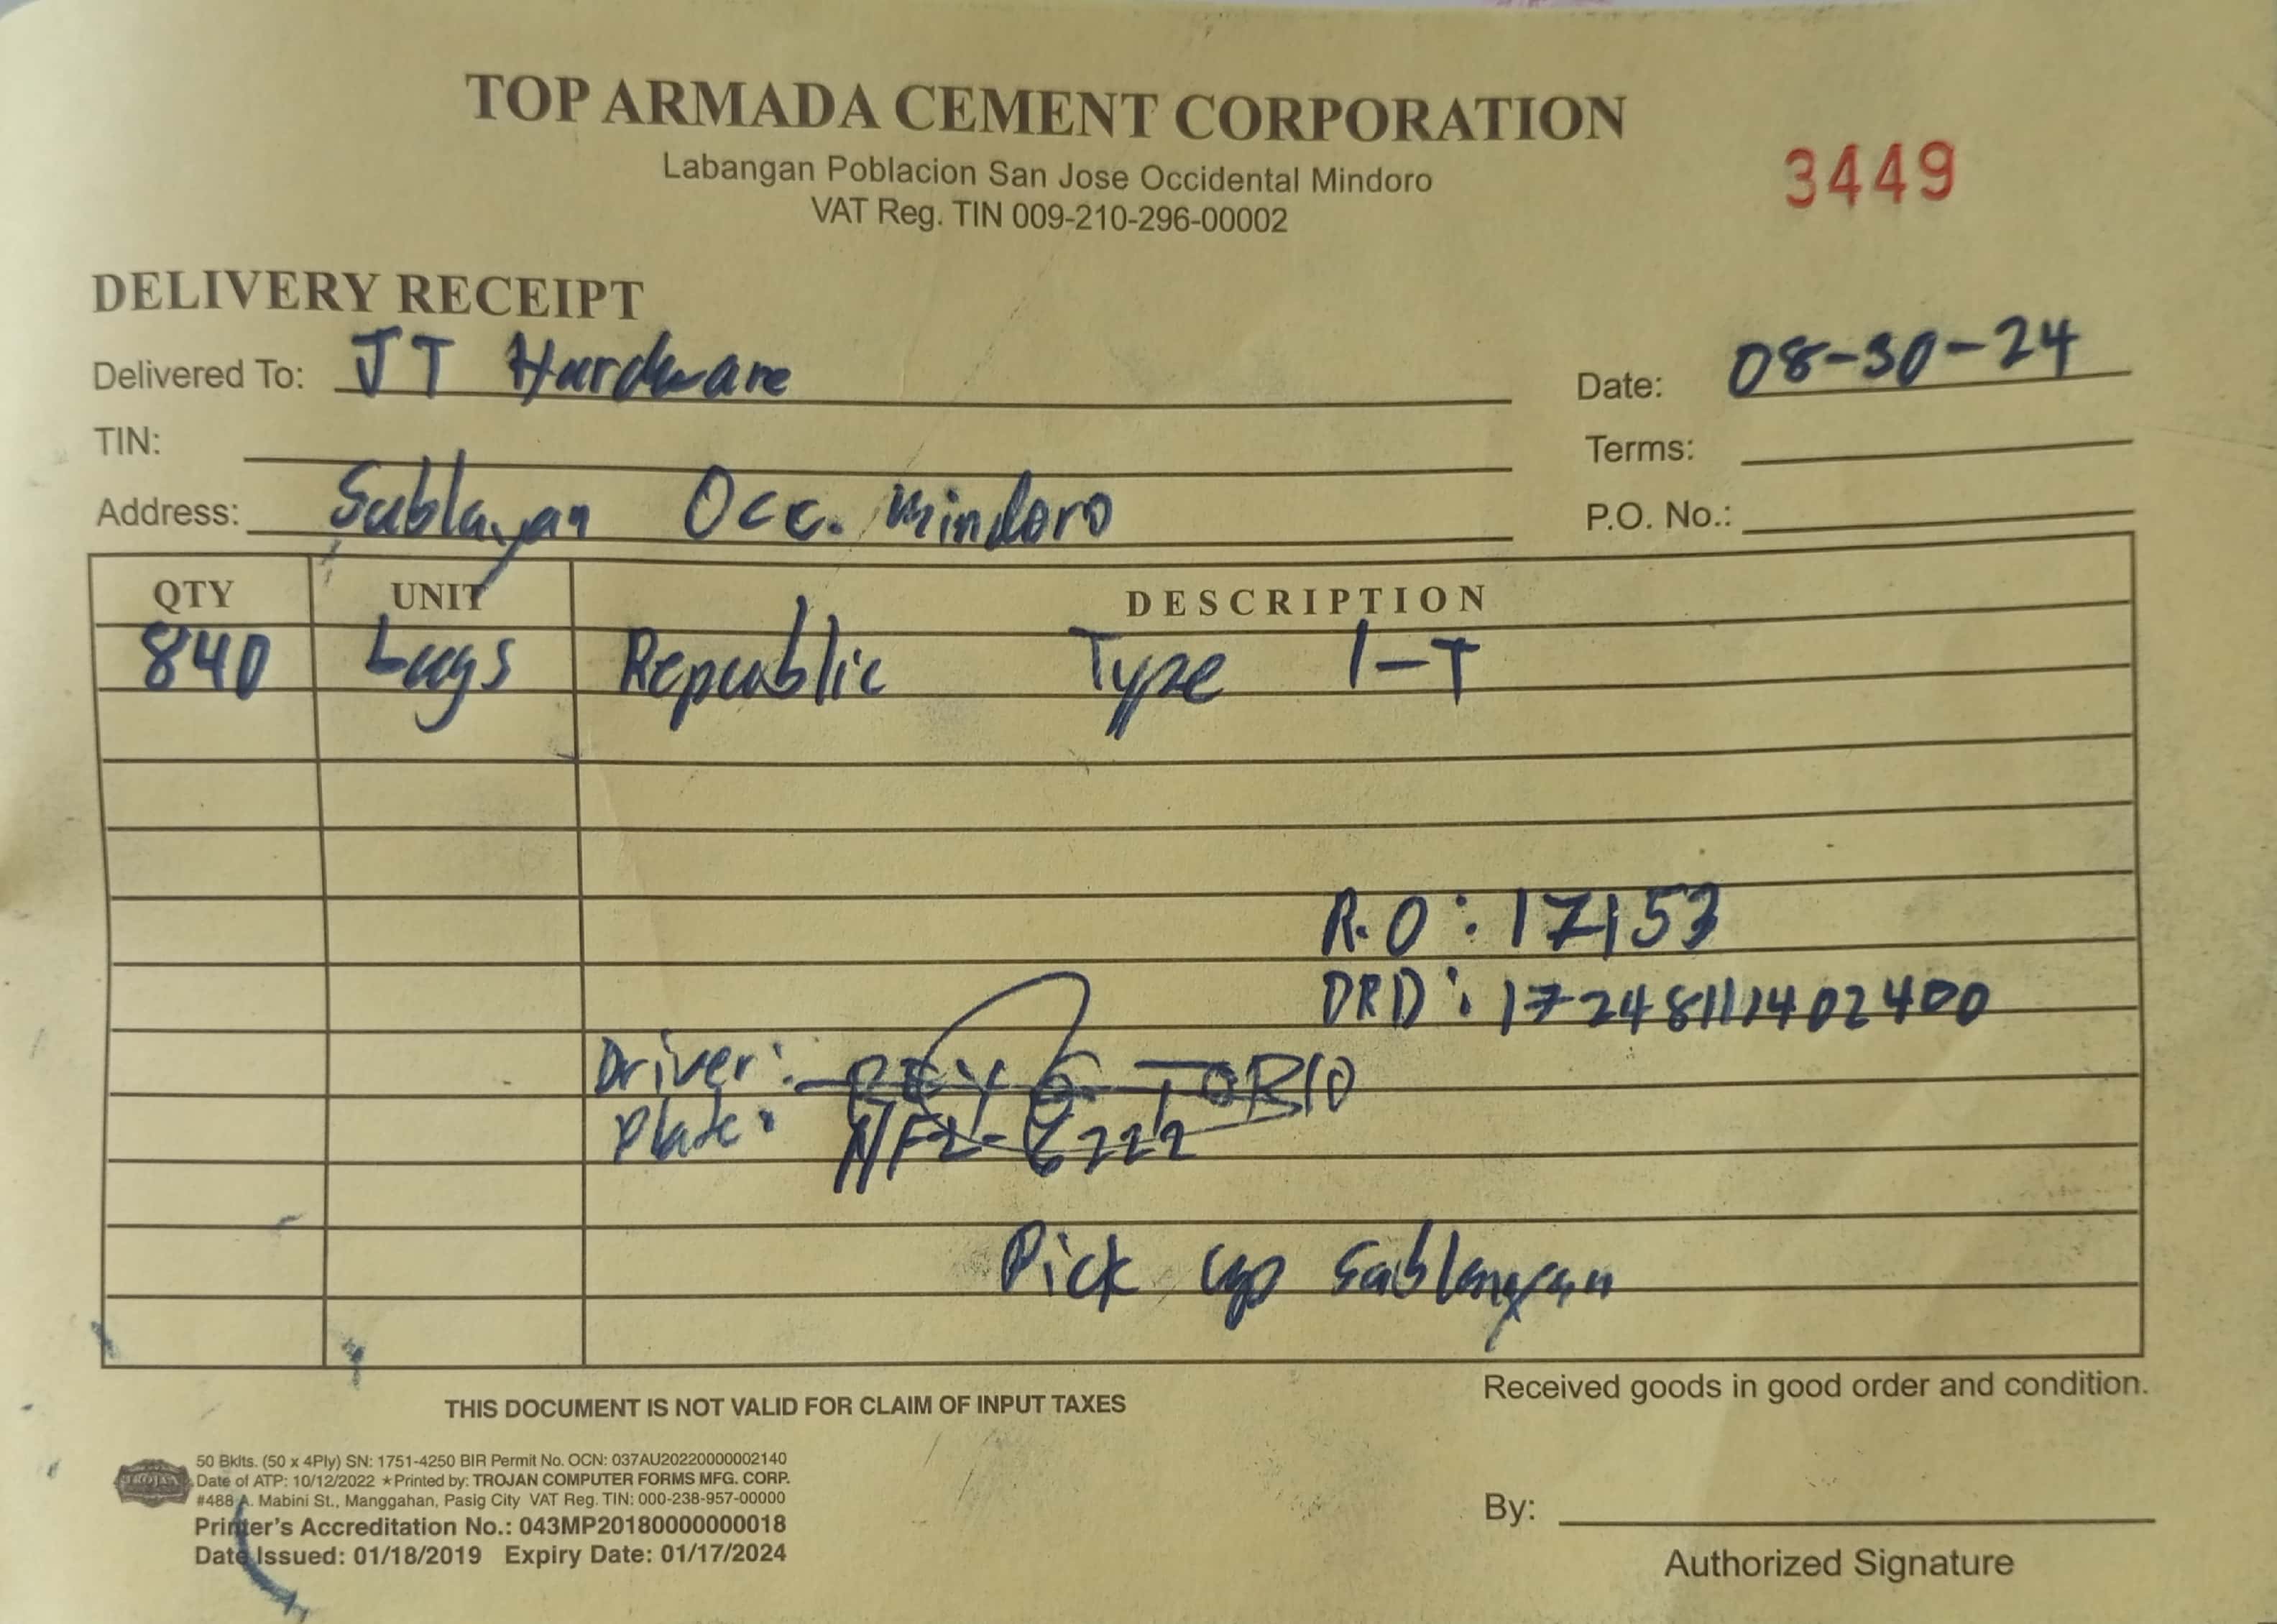 TOP ARMADA CEMENT CORPORATION
Labangan Poblacion San Jose Occidental Mindoro
VAT Reg. TIN 009-210-296-00002
3449
DELIVERY RECEIPT
Delivered To: JT Hardware
Date: 08-30-24
TIN:
Terms:
Address: Sablayan Occ. Mindoro
P.O. No.:
QTY UNIT DESCRIPTION
840 bags Republic Type 1-T
R.O: 17153
DRD: 1724811402400
Driver: REY G. TORIO
Plate: NFZ-6222
Pick up Sablayan
THIS DOCUMENT IS NOT VALID FOR CLAIM OF INPUT TAXES
Received goods in good order and condition.
TROJAN
50 Bklts. (50 x 4Ply) SN: 1751-4250 BIR Permit No. OCN: 037AU20220000002140
Date of ATP: 10/12/2022 ★Printed by: TROJAN COMPUTER FORMS MFG. CORP.
#488 A. Mabini St., Manggahan, Pasig City VAT Reg. TIN: 000-238-957-00000
Printer's Accreditation No.: 043MP20180000000018
Date Issued: 01/18/2019 Expiry Date: 01/17/2024
By:
Authorized Signature